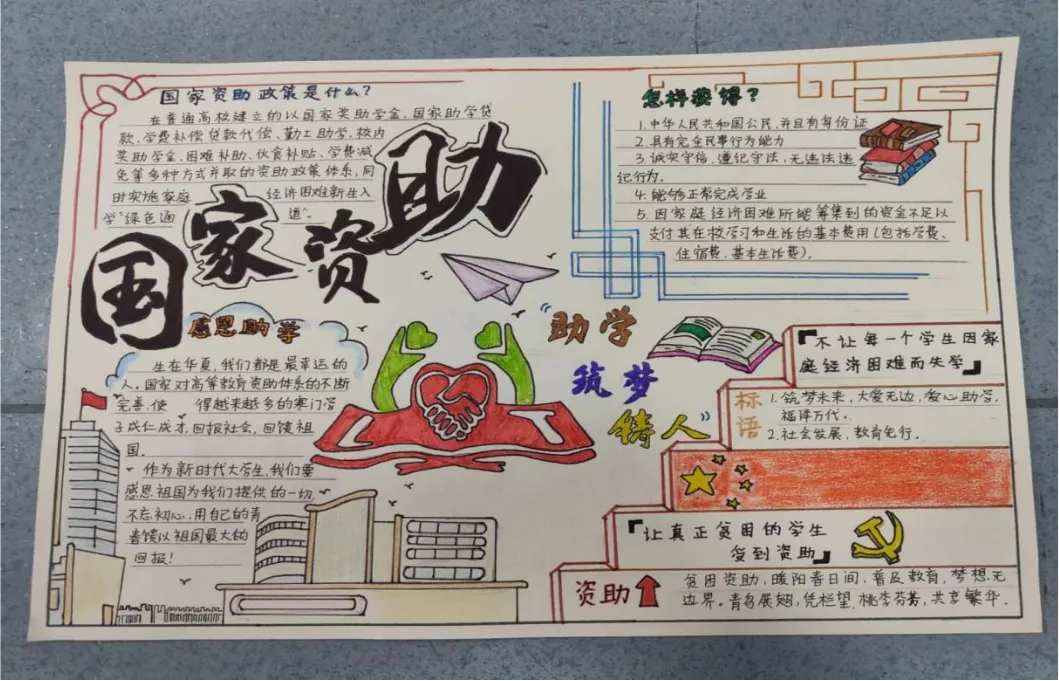 国家资助政策是什么?
在普通高校建立的以国家奖助学金、国家助学贷
款、学费补偿贷款代偿、勤工助学、校内
奖助学金、困难补助、伙食补贴、学费减
免等多种方式并取的资助政策体系,同
时实施家庭 经济困难新生入
学"绿色通 道"。
国家资助
怎样获得?
1.中华人民共和国公民,并且有身份证
2.具有完全民事行为能力
3.诚实守信,遵纪守法,无违法违
纪行为.
4.能够正常完成学业
5.因家庭经济困难所能筹集到的资金不足以
支付其在校学习和生活的基本费用(包括学费、
住宿费.基本生活费).
感恩助学
生在华夏,我们都是最幸运的
人.国家对高等教育资助体系的不断
完善.使 得越来越多的寒门学
子成仁成才,回报社会,回馈祖
国.
作为新时代大学生,我们要
感恩祖国为我们提供的一切,
不忘初心,用自己的青
春馈以祖国最大的
回报!
"助学
筑梦
铸人"
『不让每一个学生因家
庭经济困难而失学』
标语
1.筑梦未来,大爱无边,爱心助学,
福泽万代.
2.社会发展,教育先行.
『让真正贫困的学生
受到资助』
资助
贫困资助,暖阳春日间,普及教育,梦想无
边界.青鸟展翅,凭栏望,桃李芬芳,共享繁华.